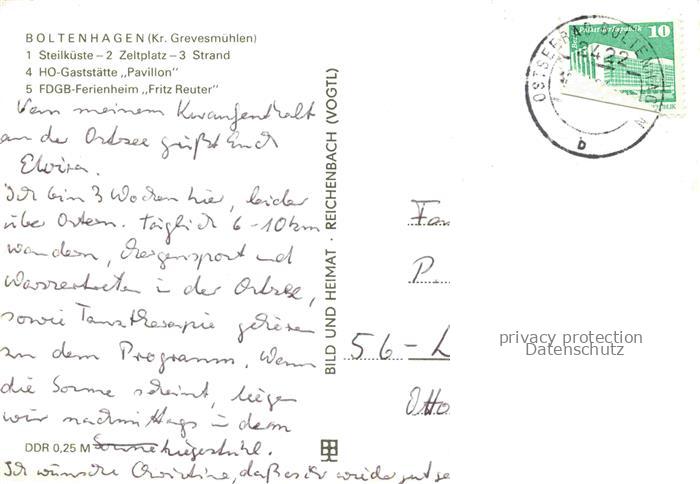 BOLTENHAGEN (Kr. Grevesmühlen)
1 Steilküste – 2 Zeltplatz – 3 Strand
4 HO-Gaststätte „Pavillon"
5 FDGB-Ferienheim „Fritz Reuter"
Von meinem Kuraufenthalt
an der Ostsee grüßt Euch
Elvira.
Ich bin 3 Wochen hier, leider
über Ostern. Täglich 6-10km
wandern, Morgensport und
Wassertreten in der Ostsee,
sowie Tanztherapie gehören
zu dem Programm. Wenn
die Sonne scheint, liegen
wir nachmittags in dem
DDR 0,25 M
Liegestühl.
Ich wünsche Christine, daß es ihr wieder gut ge
BILD UND HEIMAT · REICHENBACH (VOGTL)
OSTSEEBAD BOLTENHAGEN
2422
b
10
Fam
P.
56-L
Otto
privacy protection
Datenschutz